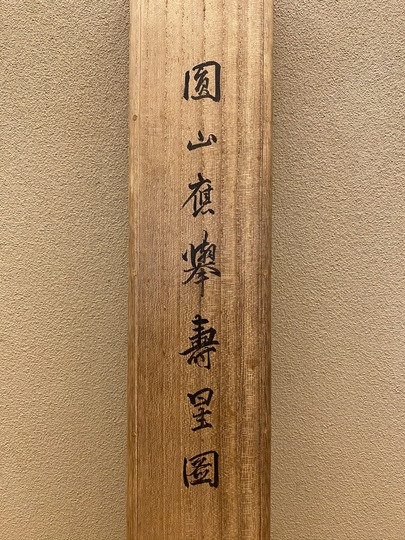 圓山應擧壽星圖